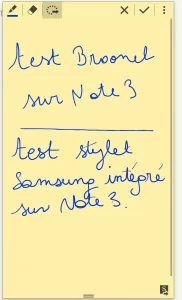 test Broonel
sur Note 3
test stylet
Samsung intégré
sur Note 3.